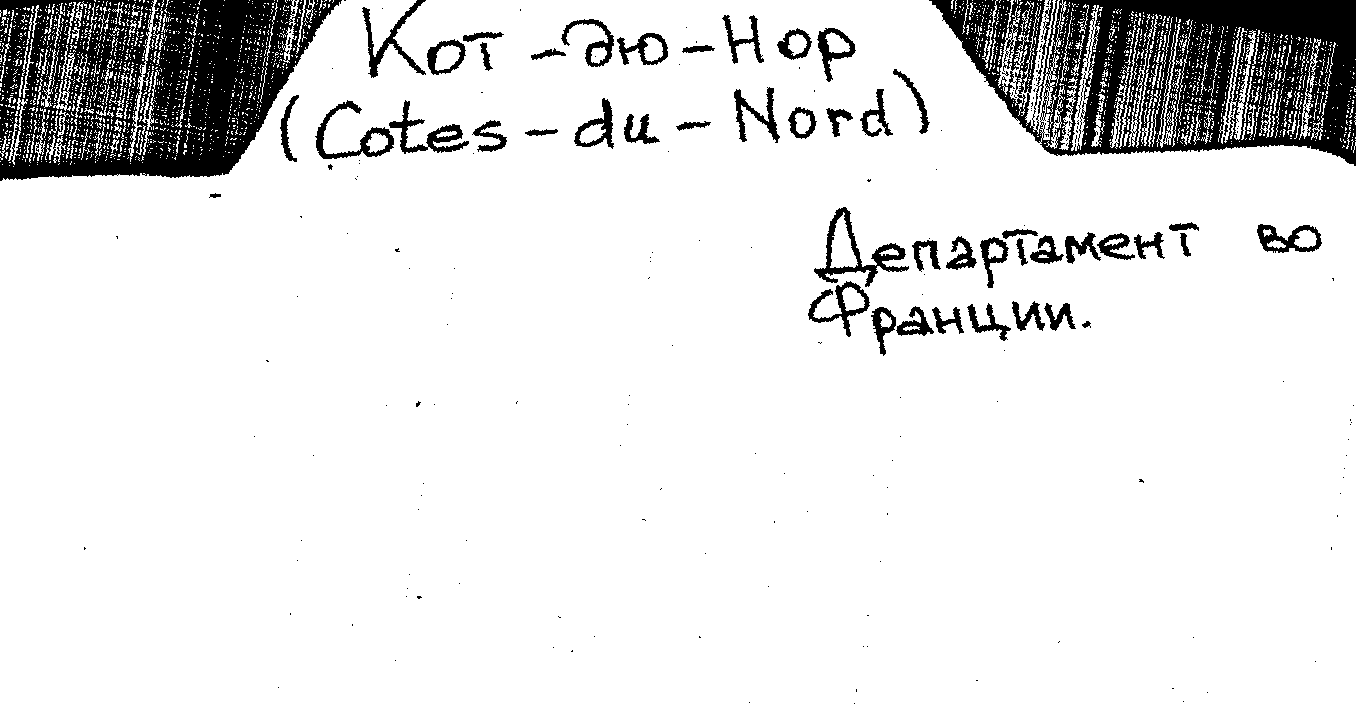 Кот-дю-Нор
(Cotes-du-Nord)
Департамент во
Франции.